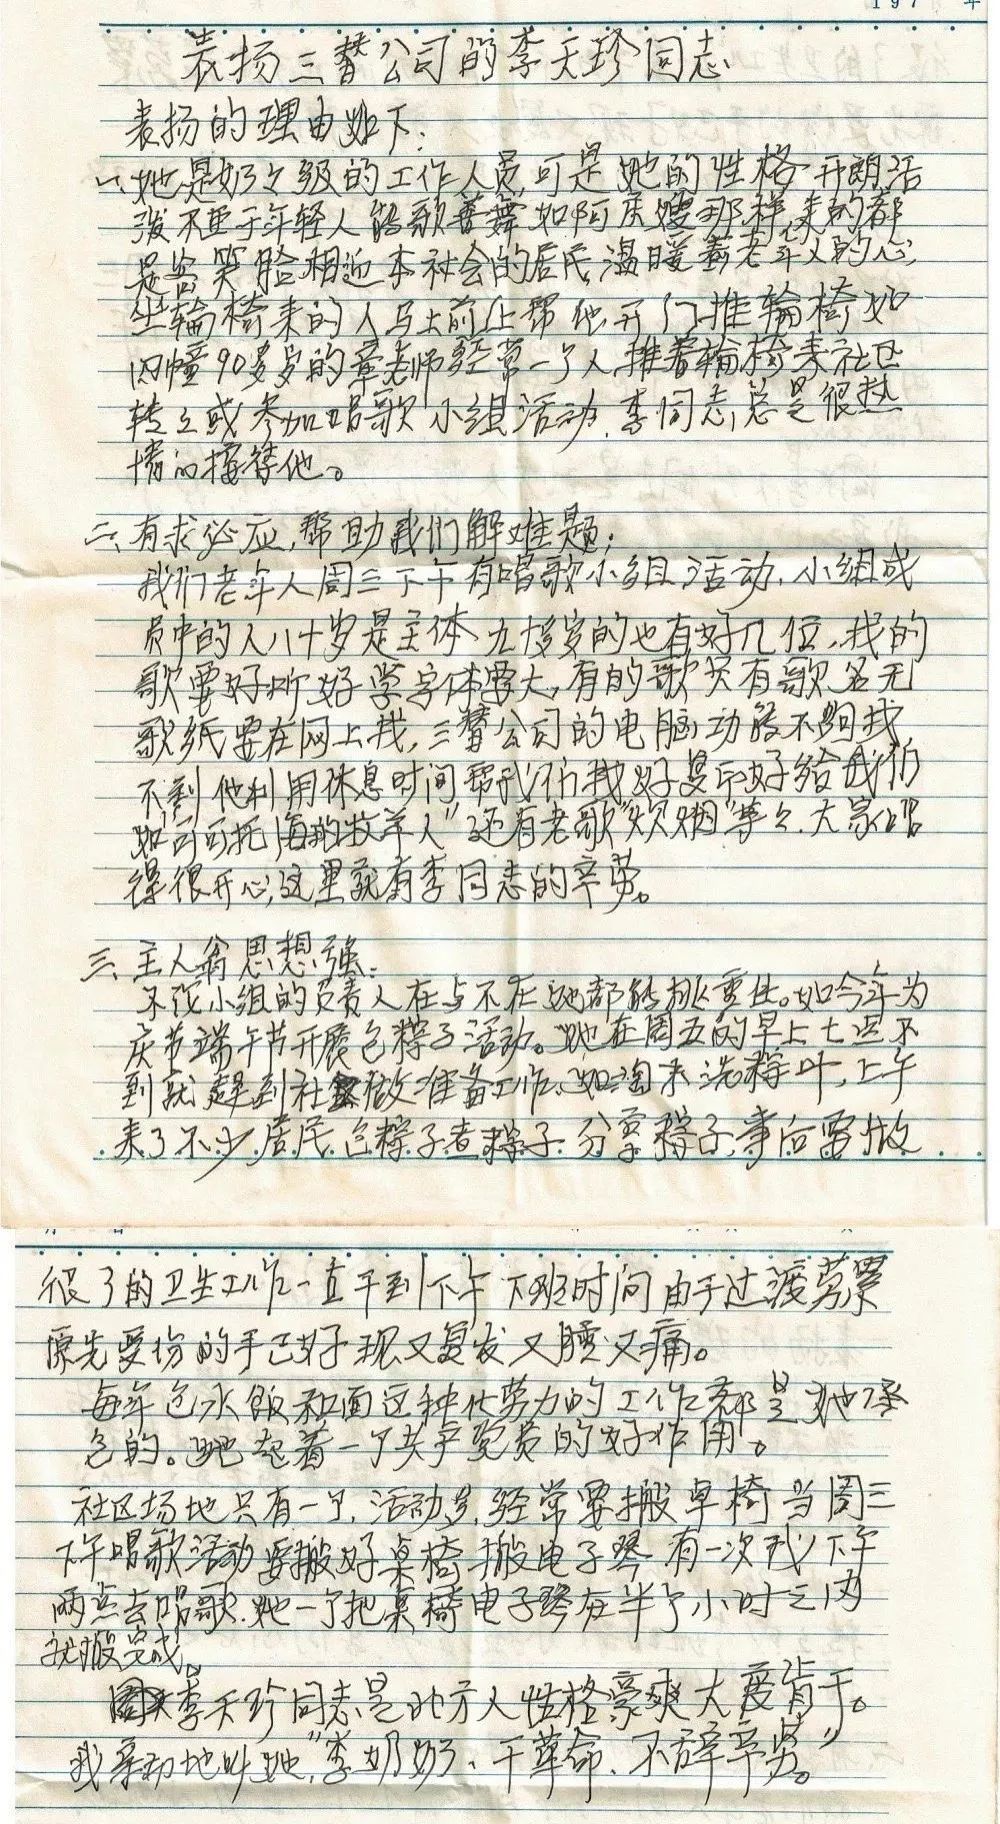 197 年
表扬三替公司的李天珍同志
表扬的理由如下:
一、她是奶之级的工作人员,可是她的性格开朗活
泼不亚于年轻人能歌善舞如阿庆嫂那样,来的都
是客笑脸相迎本社会的居民,温暖着老年人的心,
坐轮椅来的人马上前上帮他开门推轮椅如
四幢90多岁的章老师经常一个人推着轮椅来社区
转之或参加唱歌小组活动,李同志总是很热
情的接待他。
二、有求必应,帮助我们解难题;
我们老年人周三下午有唱歌小组活动,小组成
员中的人八十岁是主体九十多岁的也有好几位,找的
歌要好听好学字体要大,有的歌只有歌名无
歌纸要在网上找,三替公司的电脑功能不够找
不到他利用休息时间帮我们找好复印好给我们
如“可可托海的牧羊人”还有老歌“炊烟”等之.大家唱
得很开心,这里就有李同志的辛劳。
三、主人翁思想强.
不论小组的负责人在与不在她都能挑重任。如今年为
庆节端午节开展包粽子活动。她在周五的早上七点不
到就赶到社区做准备工作,如淘米洗粽叶,上午
来了不少居民包粽子煮粽子.分享粽子,事后要做
很多的卫生工作一直干到下午下班时间由于过渡劳累
原先受伤的手已好现又复发又肿又痛。
每年包水饺和面这种化劳力的工作都是她承
包的。她起着一个共产党员的好作用。
社区场地只有一个,活动多,经常要搬桌椅当周三
下午唱歌活动要搬好桌椅搬电子琴有一次我下午
两点去唱歌.她一个把桌椅电子琴在半个小时之内
就搬完成。
李天珍同志是北方人性格豪爽大度肯干。
我亲切地叫她,“李奶奶、干革命、不辞辛劳”。